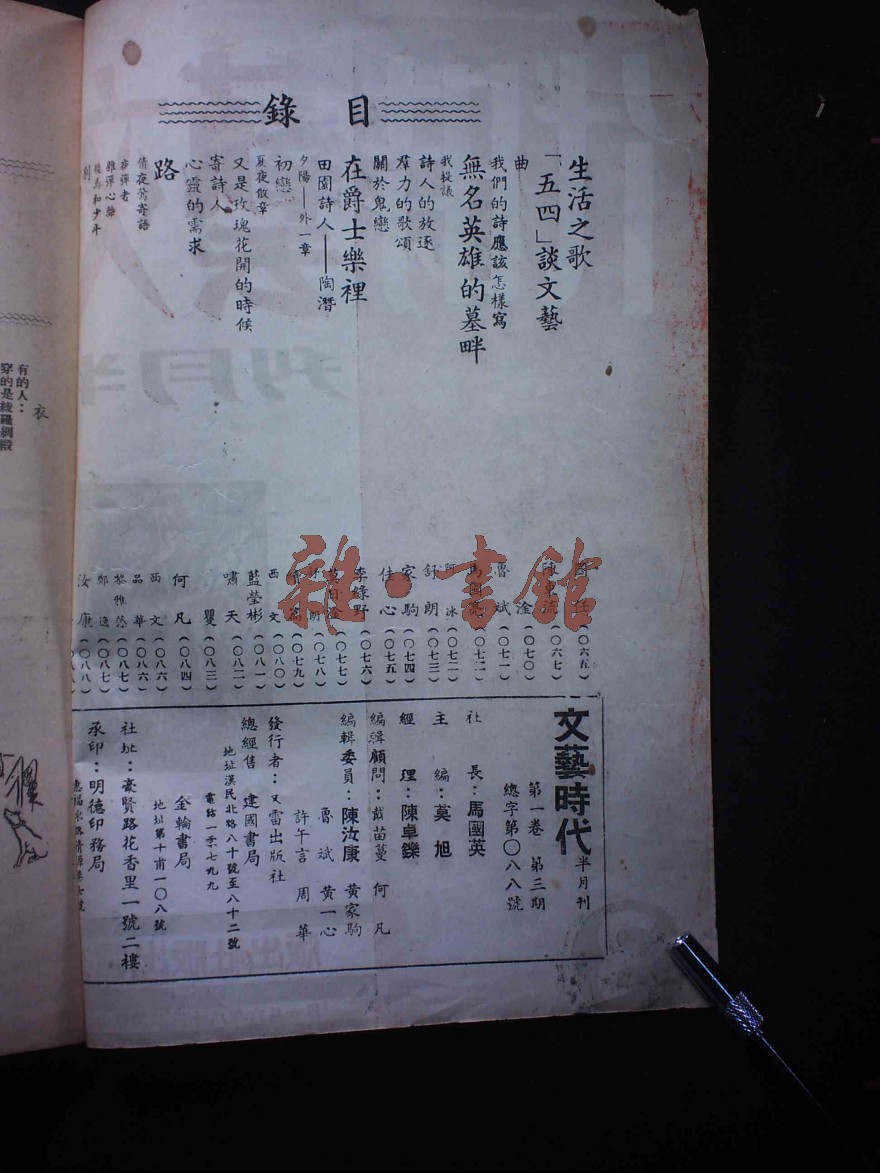 目錄
生活之歌
「五四」談文藝
曲
我們的詩應該怎樣寫
無名英雄的墓畔
我提議
詩人的放逐
羣力的歌頌
關於鬼戀
在爵士樂裡
田園詩人——陶潛
夕陽——外一章
初戀
夏夜散章
又是玫瑰花開的時候
寄詩人
心靈的需求
路
倩夜鶯寄語
(〇六五)
(〇六七)
淦(〇七〇)
魯斌(〇七一)
(〇七二)
冰(〇七二)
舒朗(〇七三)
家駒(〇七四)
佳心(〇七五)
李綠野(〇七六)
(〇七七)
(〇七八)
(〇七九)
西文(〇八〇)
藍瑩彬(〇八一)
嘯天(〇八二)
瞿(〇八三)
何凡(〇八四)
西文(〇八六)
品華(〇八六)
黎雅(〇八七)
鄭逸(〇八七)
汝康(〇八八)
文藝時代半月刊
第一卷 第三期
總字第〇八八號
社長:馬國英
主編:莫旭
經理:陳卓鑠
編輯顧問:戴苗蔓 何凡
編輯委員:陳汝康 黃家駒
魯斌 黃一心
許午言 周華
發行者:又雷出版社
總經售 建國書局
地址漢民北路八十號至八十二號
電話一零七九九
金輪書局
地址第十甫一〇八號
社址:豪賢路花香里一號二樓
承印:明德印務局
有的人:
穿的是綾羅綢緞
衣
雜·書館